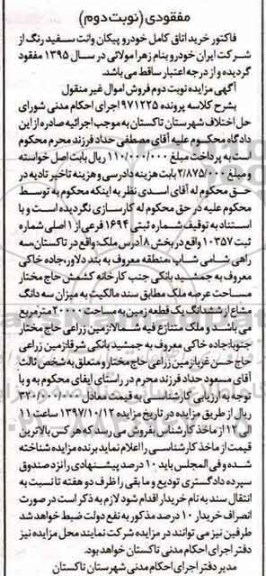 مفقودی (نوبت دوم)
فاکتور خرید اتاق کامل خودرو پیکان وانت سفید رنگ از
شرکت ایران خودرو بنام زهرا مولائی در سال ۱۳۹۵ مفقود
گردیده و از درجه اعتبار ساقط می باشد.
آگهی مزایده نوبت دوم فروش اموال غیر منقول
بشرح کلاسه پرونده ۹۷۱۲۲۵ اجرای احکام مدنی شورای
حل اختلاف شهرستان تاکستان به موجب اجرائیه صادره از این
دادگاه محکوم علیه آقای مصطفی حداد فرزند محرم محکوم
است به پرداخت مبلغ ۱۱۰/۰۰۰/۰۰۰ ریال بابت اصل خواسته
و مبلغ ۲/۸۷۵/۰۰۰ بابت هزینه دادرسی و هزینه تاخیر تادیه در
حق محکوم له آقای اسدی نظر به اینکه محکوم به توسط
محکوم علیه در حق محکوم له کارسازی نگردیده است و با
استناد به توقیف شماره ثبتی ۱۶۹۴ فرعی از ۱ اصلی شماره
ثبت ۱۰۳۵۷ واقع در بخش ۸ آدرس ملک: واقع در تاکستان سه
راهی شامی شاپ ،منطقه معروف به بند دلاور، جاده خاکی
معروف به جمشید بانکی جنب کارخانه کشمش حاج مختار
مساحت عرصه ملک مطابق سند مالکیت به میزان سه دانگ
مشاع از ششدانگ یک قطعه زمین به مساحت متر مربع
می باشد و ملک متنازع فیه شمالا زمین زراعی حاج مختار
جنوبا جاده خاکی معروف به جمشید بانکی شرقا زمین زراعی
حاج حسن غربا زمین زراعی حاج مختار و متعلق به شخص ثالث
آقای مسعود حداد فرزند محرم در راستای ایفای محکوم به و با
توجه به ارزیابی کارشناسی به قیمت معادل ۳۲۰/۰۰۰/۰۰۰
ریال از طریق مزایده در تاریخ مزایده ۱۳۹۷/۱۰/۱۲ ساعت ۱۱
- ۱۲ از ماخذ کارشناسی بفروش می رسد که هر کس بالاترین
قیمت از ماخذ کارشناسی را اعلام نماید برنده مزایده شناخته
شده و فی المجلس باید ۱۰ درصد پیشنهادی را نزد صندوق
سپرده دادگستری تودیع و مابقی را ظرف دو هفته تا نسبت به
انتقال سند به نام خریدار اقدام شود لازم به ذکر است در صورت
انصراف خریدار ۱۰ درصد مذکور به نفع دولت ضبط خواهد شد
طرفین نیز می توانند در مزایده شرکت نمایند محل مزایده نیز
دفتر اجرای احکام مدنی تاکستان خواهد بود.
مدیر دفتر اجرای احکام مدنی شهرستان تاکستان